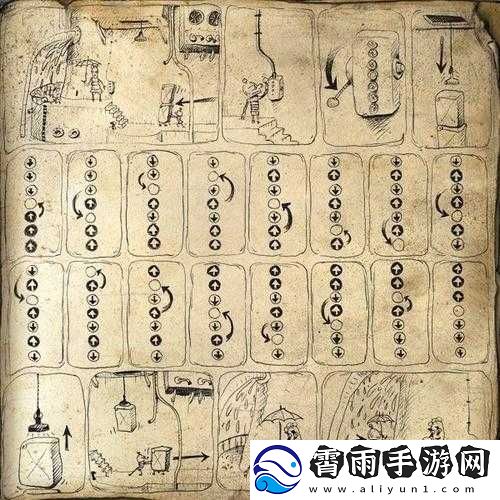 霄雨手游网
www.aliyun1.com